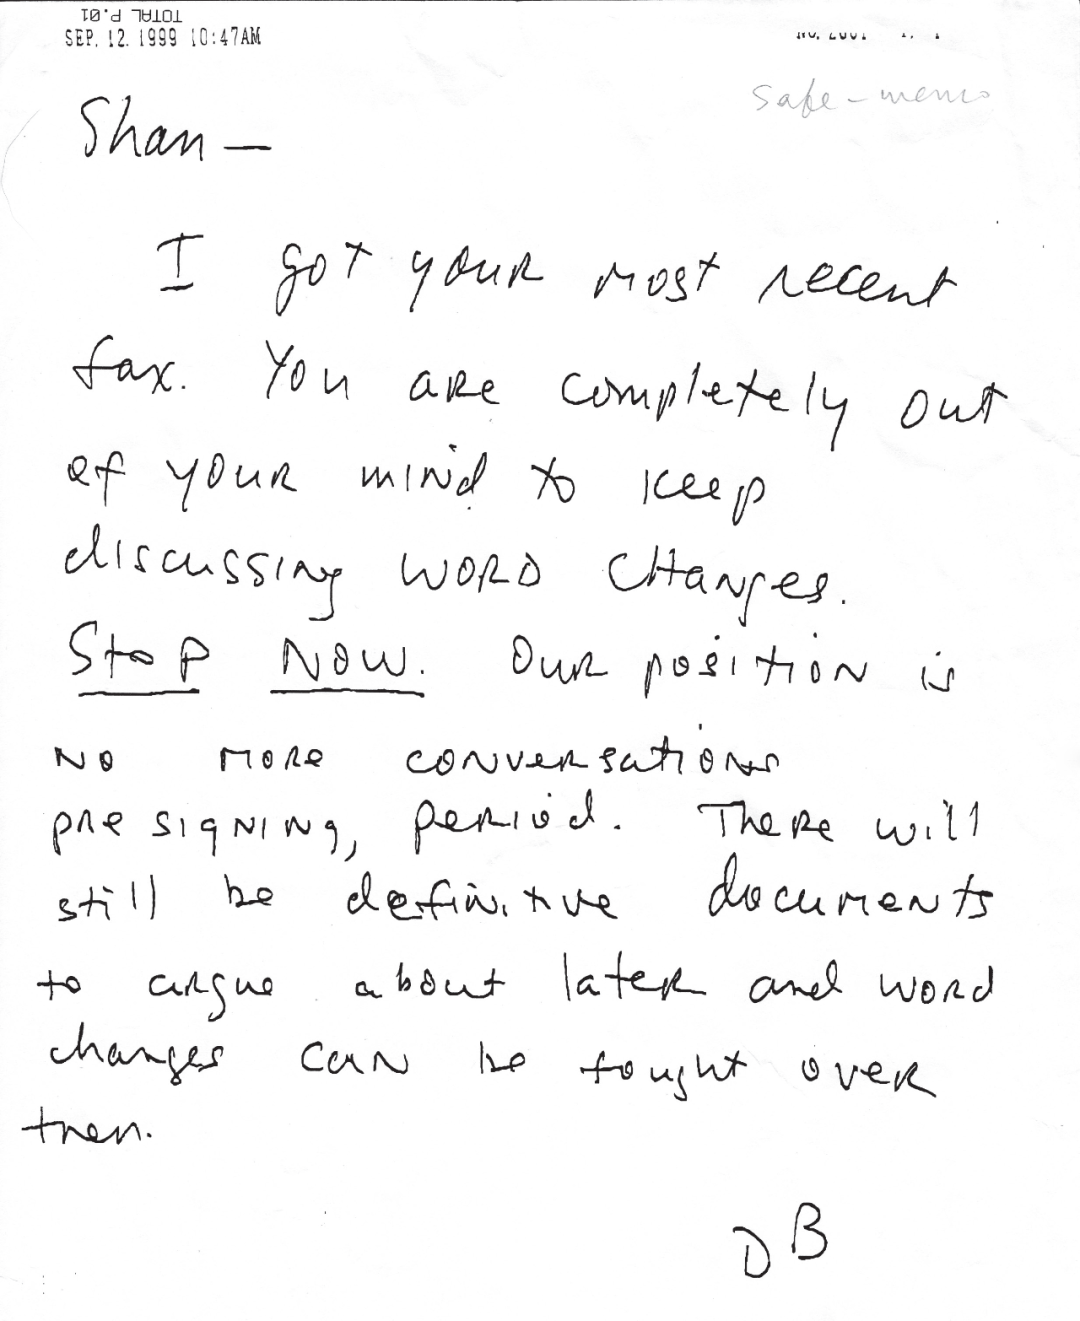 TOTAL P.01
SEP. 12. 1999 10:47AM
Safe-memo
Shan —
I got your most recent
fax. You are completely out
of your mind to keep
discussing word changes.
Stop Now. Our position is
no more conversations
presigning, period. There will
still be definitive documents
to argue about later and word
changes can be fought over
then.
DB